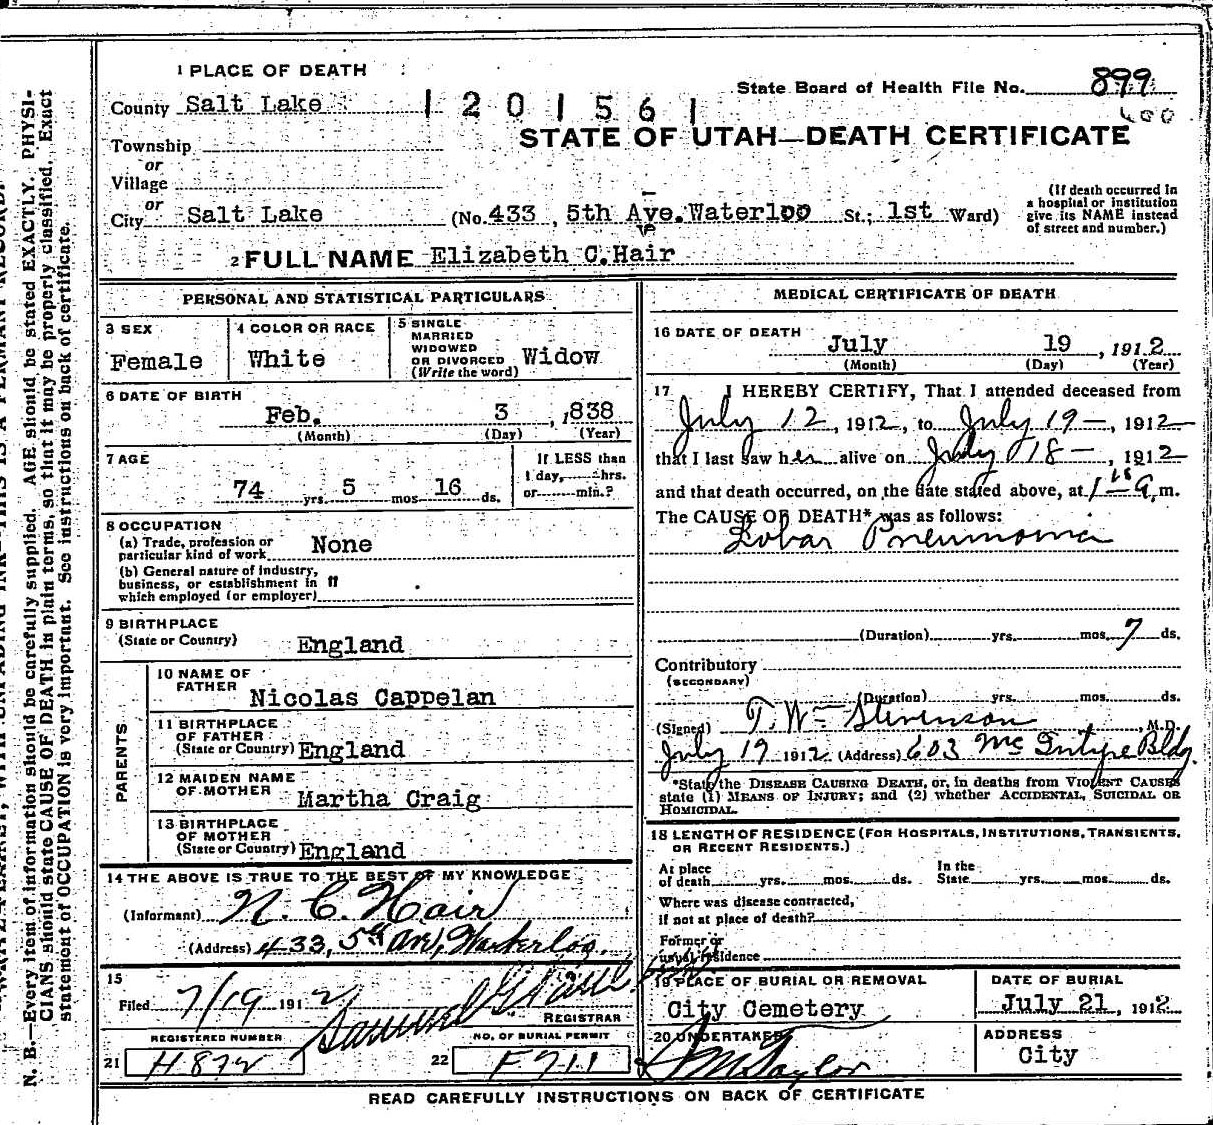 1 PLACE OF DEATH
County Salt Lake
1201561
State Board of Health File No. 899
400
STATE OF UTAH—DEATH CERTIFICATE
Township
or
Village
or
City Salt Lake (No. 433, 5th Ave. Waterloo St; 1st Ward)
(If death occurred in a hospital or institution give its NAME instead of street and number.)
2 FULL NAME Elizabeth C. Hair
PERSONAL AND STATISTICAL PARTICULARS
3 SEX
Female
4 COLOR OR RACE
White
5 SINGLE
MARRIED
WIDOWED
OR DIVORCED
(Write the word)
Widow
6 DATE OF BIRTH
Feb. 3, 1838
(Month) (Day) (Year)
7 AGE
74 yrs. 5 mos 16 ds.
If LESS than
1 day, hrs.
or min.?
8 OCCUPATION
(a) Trade, profession or
particular kind of work None
(b) General nature of industry,
business, or establishment in "
which employed (or employer)
9 BIRTHPLACE
(State or Country) England
PARENTS
10 NAME OF
FATHER Nicolas Cappelan
11 BIRTHPLACE
OF FATHER
(State or Country) England
12 MAIDEN NAME
OF MOTHER
Martha Craig
13 BIRTHPLACE
OF MOTHER
(State or Country) England
14 THE ABOVE IS TRUE TO THE BEST OF MY KNOWLEDGE
(Informant) N. C. Hair
(Address) 433, 5th Ave, Waterloo.
15
Filed 7/19 1912
Samuel G.
REGISTRAR
REGISTERED NUMBER
21 H 872
NO. OF BURIAL PERMIT
22 F 711
MEDICAL CERTIFICATE OF DEATH
16 DATE OF DEATH
July 19, 1912
(Month) (Day) (Year)
17 I HEREBY CERTIFY, That I attended deceased from
July 12, 1912, to July 19 —, 1912
that I last saw her alive on July 18 —, 1912
and that death occurred, on the date stated above, at 1 15 a, m.
The CAUSE OF DEATH* was as follows:
Lobar Pneumonia
(Duration) yrs. mos. 7 ds.
Contributory
(SECONDARY)
(Duration) yrs. mos. ds.
(Signed) T. Wm Stevenson M.D.
July 19 1912 (Address) 603 McIntyre Bldg.
*State the DISEASE CAUSING DEATH, or, in deaths from VIOLENT CAUSES
state (1) MEANS OF INJURY; and (2) whether ACCIDENTAL, SUICIDAL OR
HOMICIDAL.
18 LENGTH OF RESIDENCE (FOR HOSPITALS, INSTITUTIONS, TRANSIENTS,
OR RECENT RESIDENTS.)
At place
of death yrs. mos. ds.
In the
State yrs. mos. ds.
Where was disease contracted,
if not at place of death?
Former or
usual residence
19 PLACE OF BURIAL OR REMOVAL
City Cemetery
DATE OF BURIAL
July 21, 1912
20 UNDERTAKER
Taylor
ADDRESS
City
READ CAREFULLY INSTRUCTIONS ON BACK OF CERTIFICATE
N. B.—Every item of information should be carefully supplied. AGE should be stated EXACTLY. PHYSI-
CIANS should state CAUSE OF DEATH in plain terms, so that it may be properly classified. Exact
statement of OCCUPATION is very important. See instructions on back of certificate.